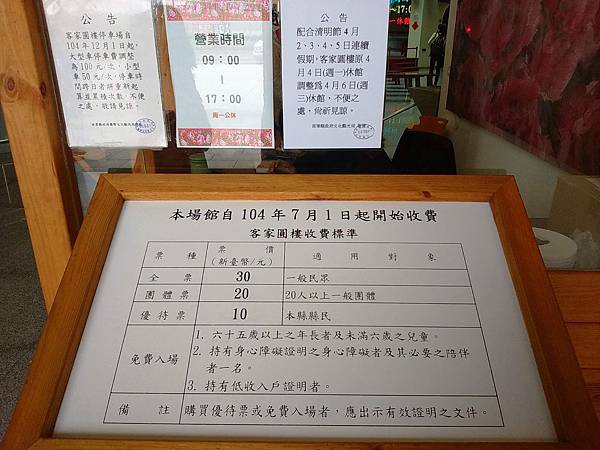 公告
客家圓樓停車場自
104年12月1日起,
大型車停車費調整
為100元/次,小型
車50元/次,停車時
間跨日者將重新起
算並累積次數,不便
之處,敬請見諒。
營業時間
09:00
|
17:00
周一公休
公告
配合清明節4月
2、3、4、5日連續
假期,客家圓樓原4
月4日(週一)休館
調整為4月6日(週
三)休館,不便之
處,尚祈見諒。
本場館自104年7月1日起開始收費
客家圓樓收費標準
票種 票價(新臺幣/元) 適用對象
全票 30 一般民眾
團體票 20 20人以上一般團體
優待票 10 本縣縣民
免費入場
1. 六十五歲以上之年長者及未滿六歲之兒童。
2. 持有身心障礙證明之身心障礙者及其必要之陪伴
者一名。
3. 持有低收入戶證明者。
備註 購買優待票或免費入場者,應出示有效證明之文件。